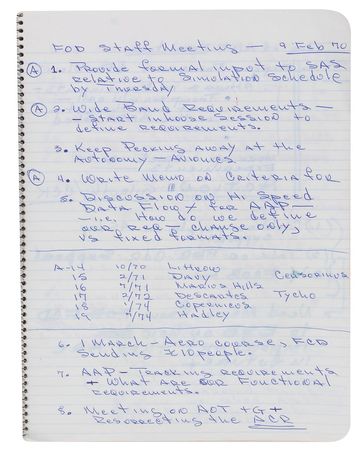 FOD Staff Meeting — 9 Feb 70
(A) 1. Provide formal input to SAS
relative to Simulation Schedule
by Thursday
(A) 2. Wide Band Requirements —
- Start inhouse session to
define requirements.
3. Keep Pecking away at the
Autonomy - Avionics
(A) 4. Write memo on Criteria for
5. Discussion on Hi Speed
Data Flow / for AAP —
— i.e. How do we define
our reqt change only,
vs fixed formats.
A-14 10/70 Littrow
15 2/71 Davy Censorinus
16 7/71 Marius Hills
17 2/72 Descartes Tycho
18 /74 Copernicus
19 /74 Hadley
6. 1 March - Aero course, FCD
Sending ≥10 people.
7. AAP - Tracking requirements
+ What are our Functional
requirements.
8. Meeting on AOT + G +
Resurrecting the ACR